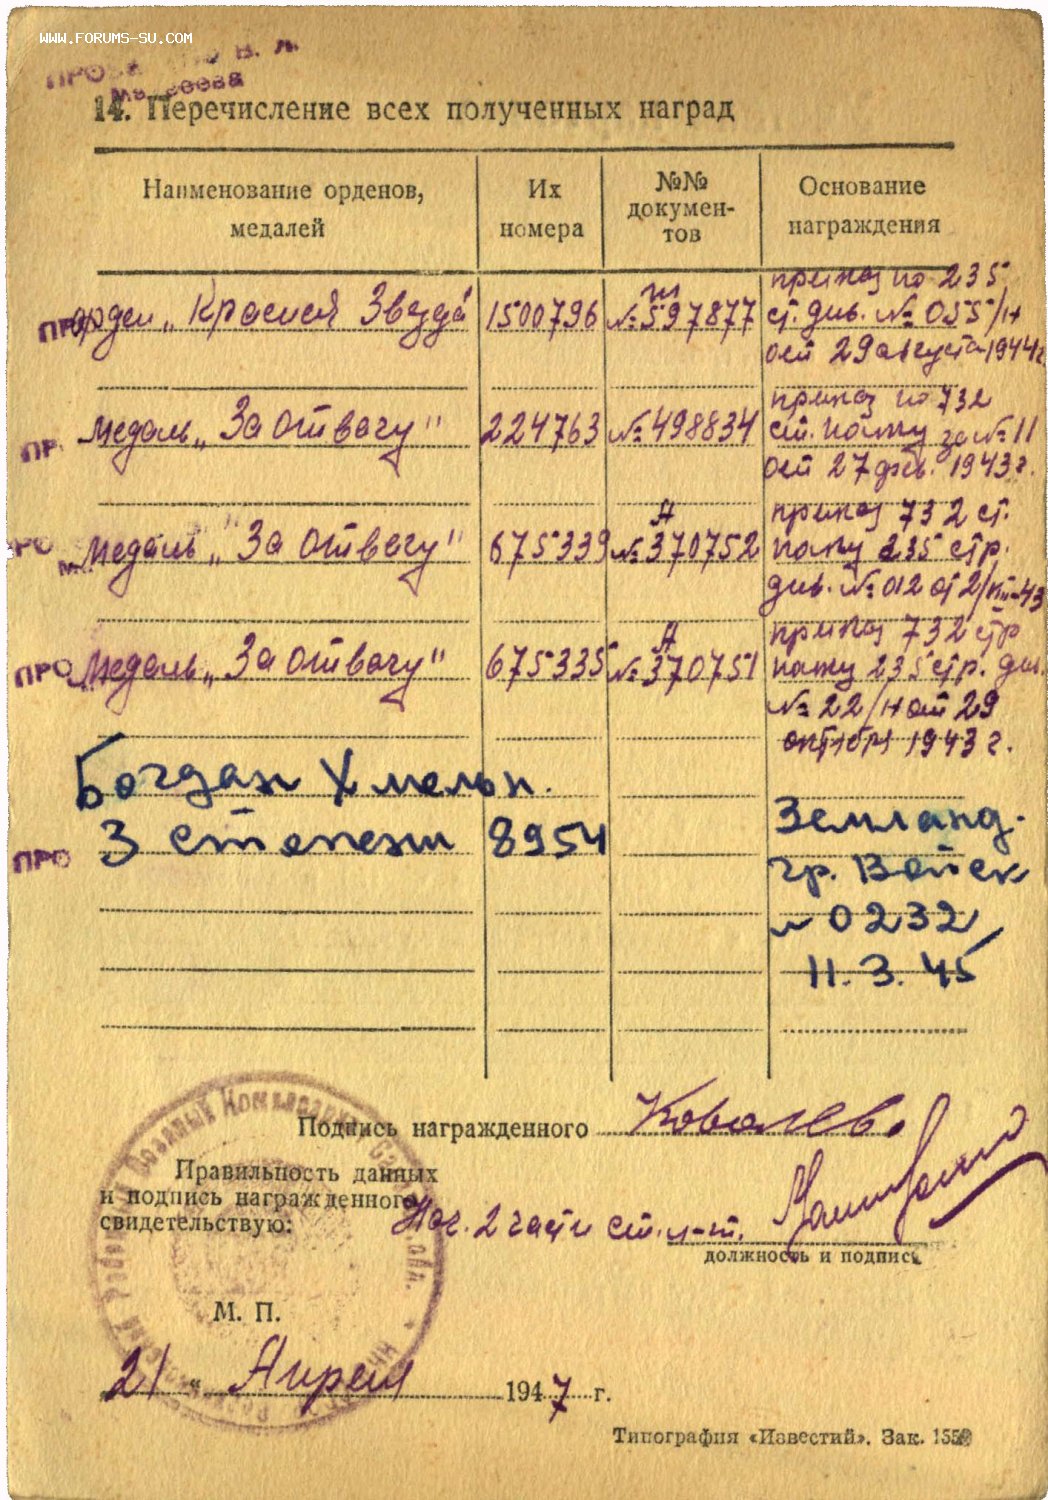 WWW.FORUMS-SU.COM
14. Перечисление всех полученных наград
Наименование орденов, медалей
Их номера
№№ документов
Основание награждения
орден „Красная Звезда" 1500796 № 597877 приказ по 235
ст. див. № 055/н
от 29 августа 1944 г.
медаль „За отвагу" 224763 № 498834 приказ по 732
ст. полку за № 11
от 27 фев. 1943 г.
медаль „За отвагу" 675339 № А 370752 приказ 732 ст.
полку 235 стр.
див. № 012 от 2/
43
медаль „За отвагу" 675335 № А 370751 приказ 732 стр
полку 235 стр. див.
№ 22/н от 29
октября 1943 г.
Богдан Хмельн.
3 степени 8954 Земланд.
гр. Войск
№ 0232
11.3.45
Подпись награжденного Ковалев
Правильность данных
и подпись награжденного
свидетельствую:
Нач. 2 части ст. л-т.
должность и подпись
М. П.
21 " Апреля 1947 г.
Типография «Известий». Зак. 155